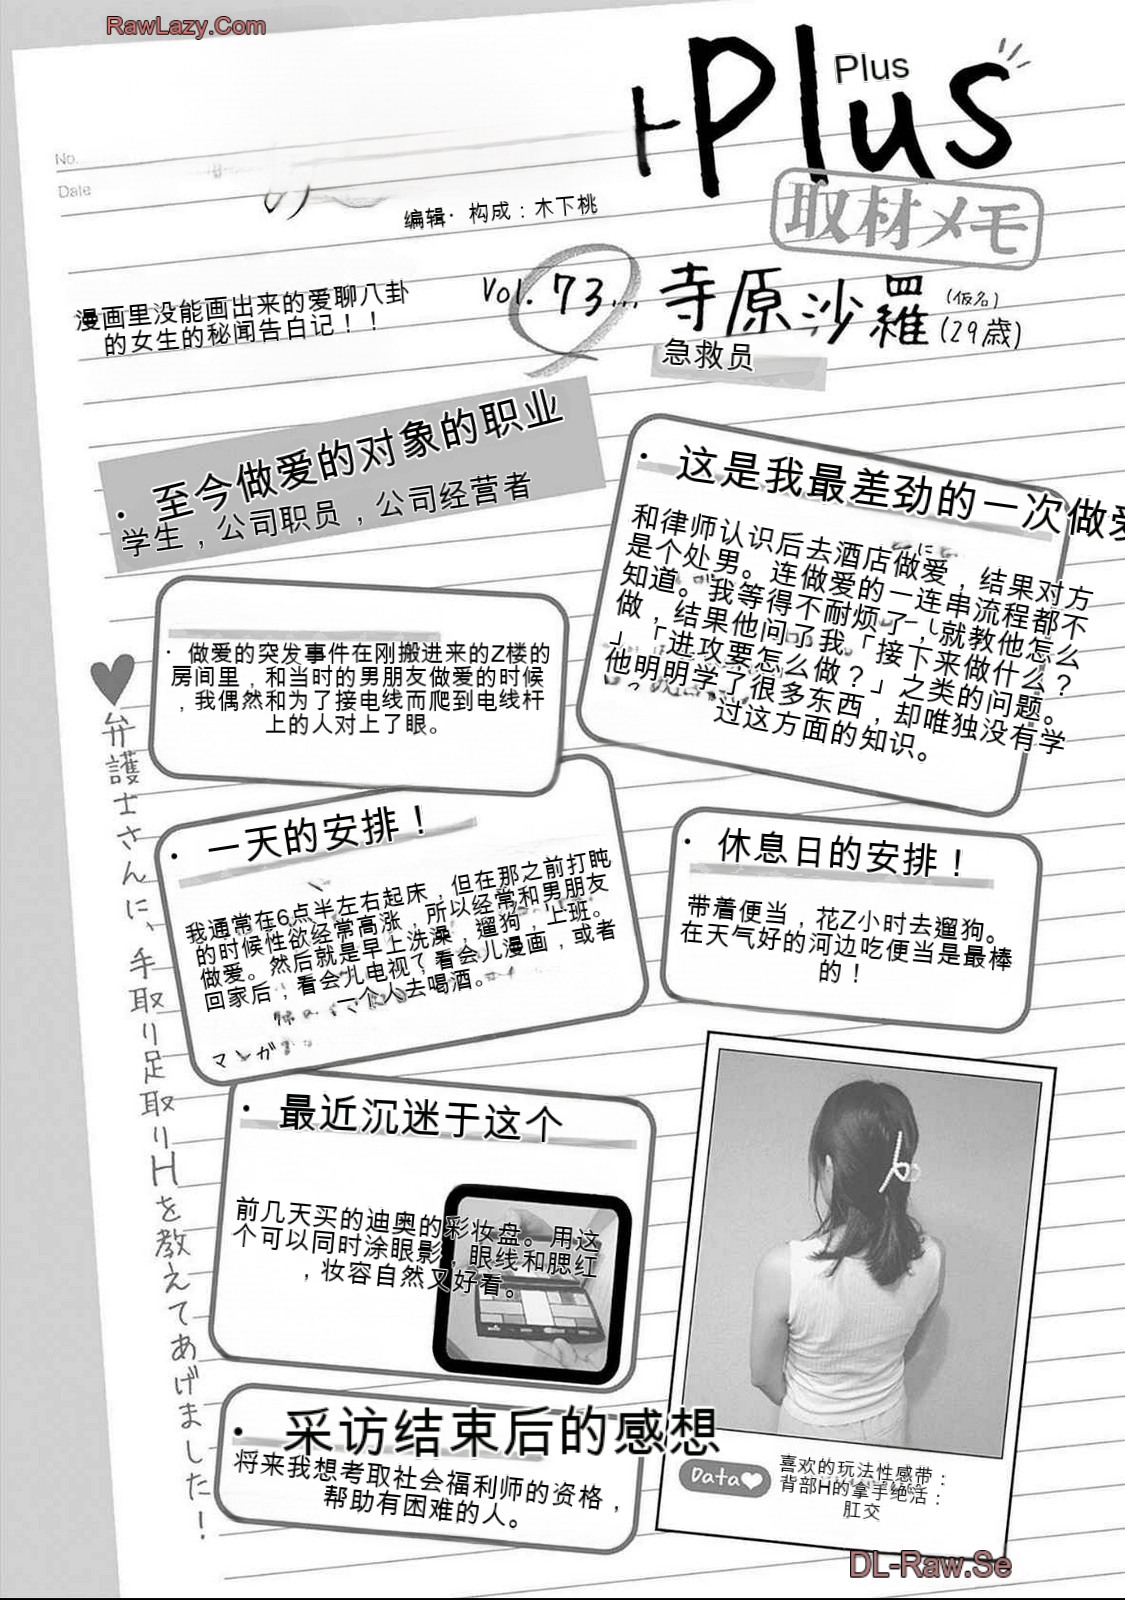 RawLazy.Com
Plus
+Plus
取材メモ
No.
Date
编辑·构成：木下桃
漫画里没能画出来的爱聊八卦
的女生的秘闻告白记！！
Vol.73…寺原沙羅(仮名)(29歳)
急救员
·至今做爱的对象的职业
学生，公司职员，公司经营者
·这是我最差劲的一次做爱
和律师认识后去酒店做爱，结果对方
是个处男。连做爱的一连串流程都不
知道。我等得不耐烦了，就教他怎么
做，结果他问了我「接下来做什么？
」「进攻要怎么做？」之类的问题。
他明明学了很多东西，却唯独没有学
过这方面的知识。
·做爱的突发事件在刚搬进来的Z楼的
房间里，和当时的男朋友做爱的时候
，我偶然和为了接电线而爬到电线杆
上的人对上了眼。
♥弁護士さんに、手取り足取りHを教えてあげました！
·一天的安排！
我通常在6点半左右起床，但在那之前打盹
的时候性欲经常高涨，所以经常和男朋友
做爱。然后就是早上洗澡，遛狗，上班。
回家后，看会儿电视，看会儿漫画，或者
一个人去喝酒。
マンガ
·休息日的安排！
带着便当，花Z小时去遛狗。
在天气好的河边吃便当是最棒
的！
·最近沉迷于这个
前几天买的迪奥的彩妆盘。用这
个可以同时涂眼影，眼线和腮红
，妆容自然又好看。
·采访结束后的感想
将来我想考取社会福利师的资格，
帮助有困难的人。
Data♥
喜欢的玩法性感带：
背部H的拿手绝活：
肛交
DL-Raw.Se